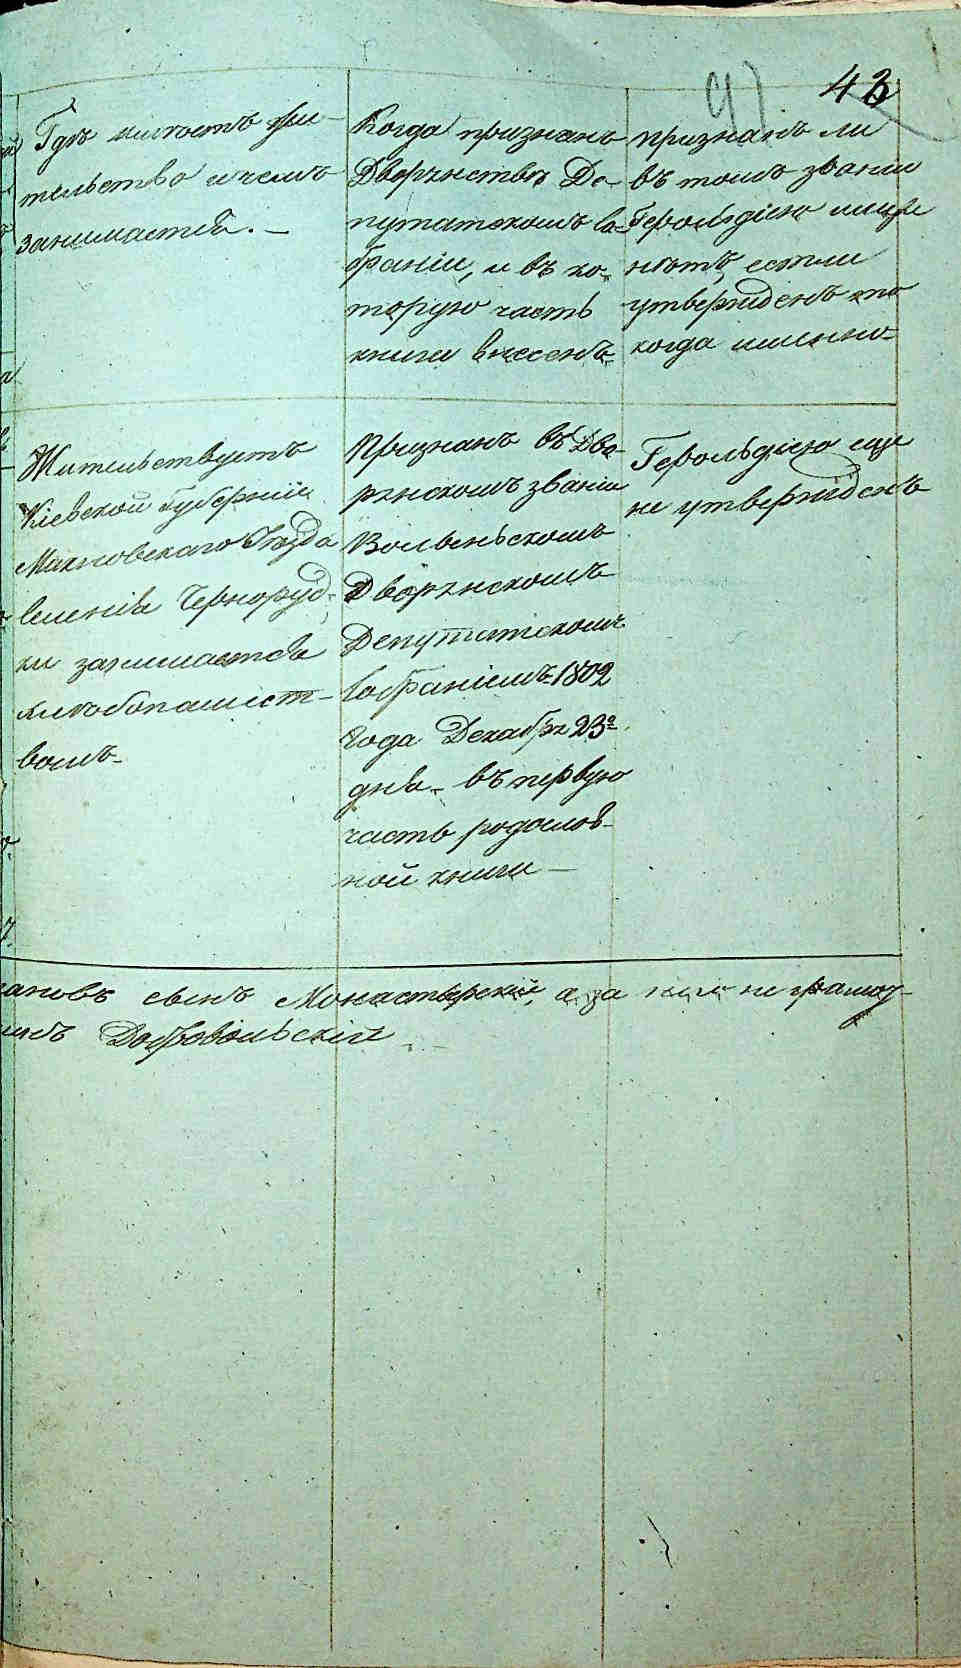 91
43
Гдѣ имѣетъ жи-
тельство и чемъ
занимается. —
Когда признанъ
Дворянствѣ Де-
путатскомъ Со-
браніи, и въ ко-
торую часть
книги внесенъ
признанъ ли
въ томъ званіи
Герольдіею или
нѣтъ, естли
утвержденъ то
когда именно
Жительствуетъ
Кіевской Губерніи
Махновскаго Уѣзда
селенія Черноруд-
ки занимается
хлѣбопашест-
вомъ
Признанъ въ Дво-
рянскомъ званіи
Волыньскомъ
Дворянскомъ
Депутатскомъ
Собраніемъ 1802
года Декабря 23го
дня въ первую
часть родослов-
ной книги —
Герольдіею еще
не утвержденъ
ановъ сынъ Монастырскій, а за не грамот-
Добровольскій